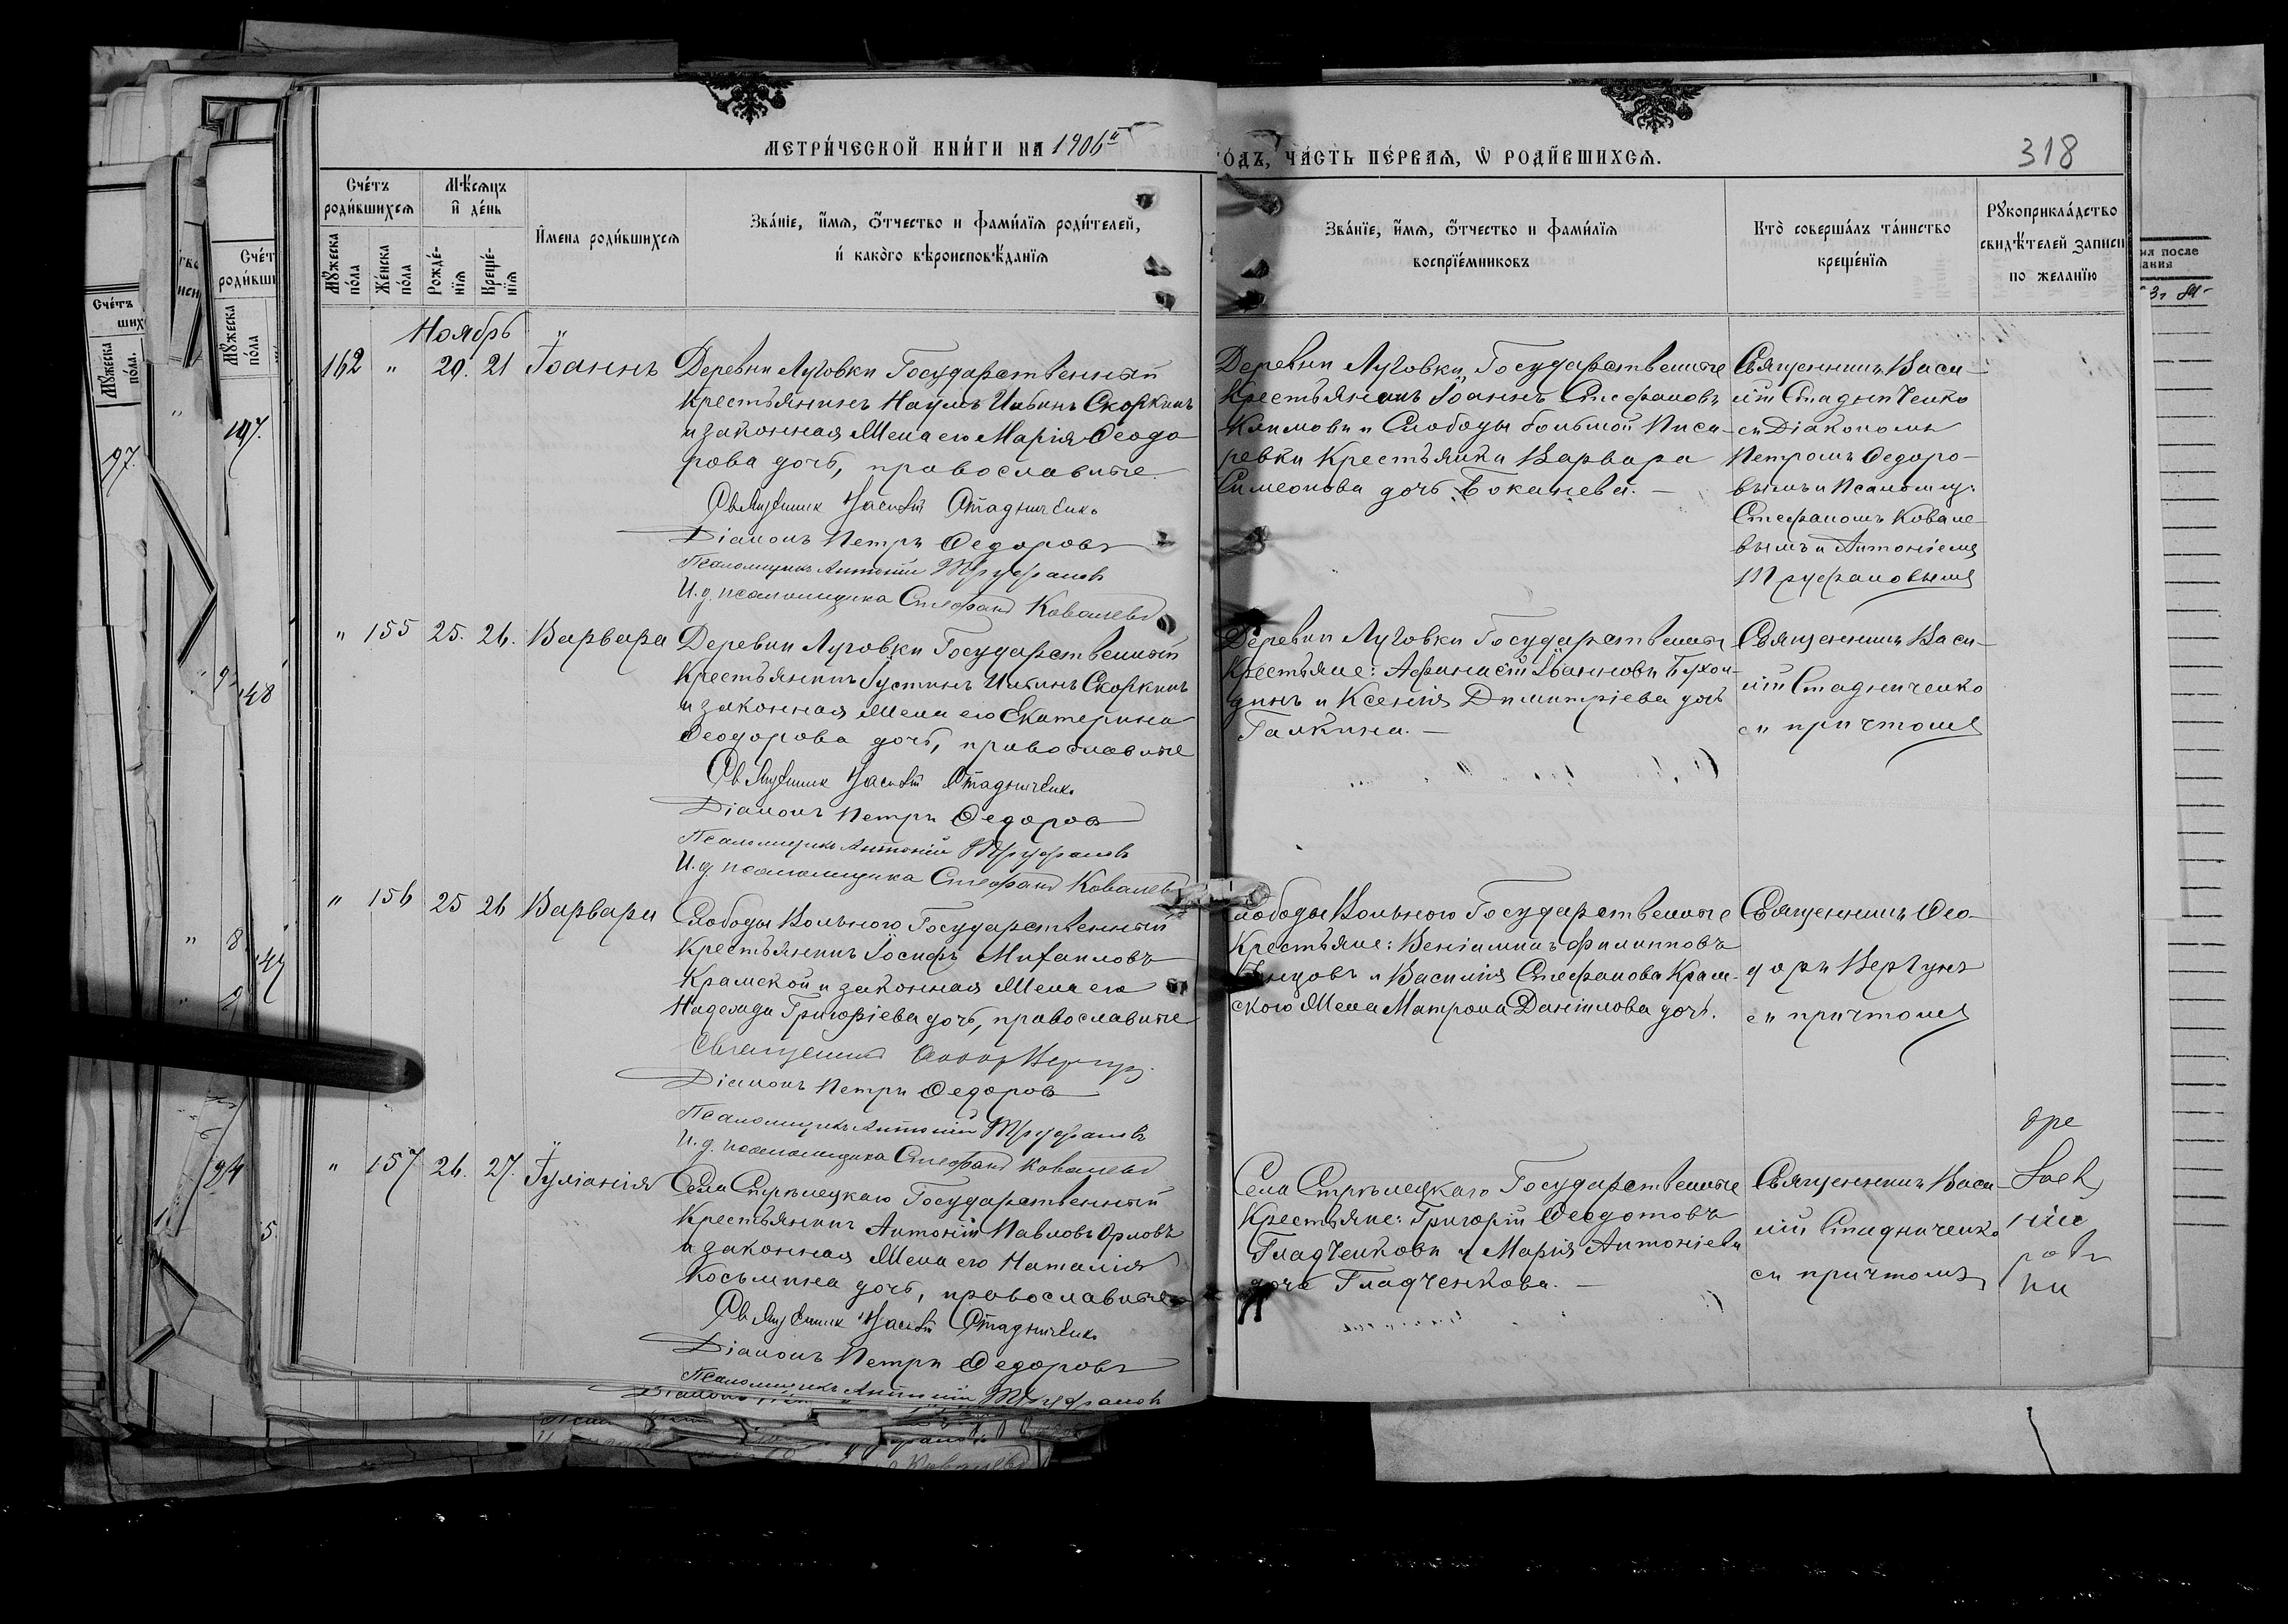 МЕТРИ́ЧЕСКОЙ КНИ́ГИ НА 1906й
ГО́ДЪ, ЧА́СТЬ ПЕ́РВАѦ, Ѡ РОДИ́ВШИХСѦ.
318
Сче́тъ роди́вшихсѧ
Мѣ́сѧцъ и҆ де́нь
Мꙋ́жеска по́ла
Же́нска по́ла
Рожде́-нїѧ
Креще́-нїѧ
И҆мена роди́вшихсѧ
Зва́нїе, и҆́мѧ, ѻ҆́тчество и фами́лїѧ роди́телей,
и҆ како́гѡ вѣроисповѣ́данїѧ
Зва́нїе, и҆́мѧ, ѻ҆́тчество и фами́лїѧ
воспрїе́мниковъ
Кто̀ соверша́лъ та́инство
креще́нїѧ
Рꙋкоприкла́дство
свидѣ́телей записи
по жела́нїю
Ноябрь
162 " 20. 21 Іоаннъ
Деревни Луговки Государственный
крестьянинъ Наумъ Ильинъ Скоркинъ
и законная Жена его Марія Ѳеодо-
рова дочь, православные.
Священник Василій Стадниченко
Діаконъ Петръ Ѳедоровъ
Псаломщикъ Антоній Труфановъ
И. д. псаломщика Стефанъ Ковалевъ
Деревни Луговки, Государственные
Крестьянинъ Іоаннъ Стефановъ
Климовъ и Слободы большой Писа-
ревки Крестьянка Варвара
Симеонова дочь
Священникъ Васи-
лій Стадниченко
съ Діакономъ
Петромъ Ѳедоро-
вымъ и Псаломщ.
Стефаномъ Ковале-
вымъ и Антоніемъ
Труфановымъ
" 155 25. 26. Варвара
Деревни Луговки Государственный
Крестьянинъ Іустинъ Ильинъ Скоркинъ
и законная Жена его Екатерина
Ѳеодорова дочь, православные
Священник Василій Стадниченко
Діаконъ Петръ Ѳедоровъ
Псаломщикъ Антоній Труфановъ
И. д. псаломщика Стефанъ Ковалевъ
Деревни Луговки Государственные
Крестьяне: Афанасій Іоанновъ
и Ксенія Димитріева дочь
Галкина. —
Священникъ Васи-
лій Стадниченко
съ причтомъ
" 156 25 26 Варвара
Слободы Вольного Государственный
Крестьянинъ Іосифъ Михаиловъ
Крамской и законная Жена его
Надежда Григоріева дочь, православные
Священникъ Ѳеодоръ Вергунъ
Діаконъ Петръ Ѳедоровъ
Псаломщикъ Антоній Труфановъ
И. д. псаломщика Стефанъ Ковалевъ
Слободы Вольного Государственные
Крестьяне: Веніаминъ Филипповъ
и Василія Стефанова Крам-
ского Жена Матрона Даніилова дочь.
Священникъ Ѳео-
доръ Вергунъ
съ причтомъ
" 157 26. 27. Іуліанія
Села Стрѣлецкаго Государственный
Крестьянинъ Антоній Павловъ Орловъ
и законная Жена его Наталія
Косьмина дочь, православные
Священник Василій Стадниченко
Діаконъ Петръ Ѳедоровъ
Псаломщикъ Антоній Труфановъ
Села Стрѣлецкаго Государственные
Крестьяне: Григорій Ѳеодотовъ
Гладченковъ и Марія Антоніева
дочь Гладченкова. —
Священникъ Васи-
лій Стадниченко
съ причтомъ